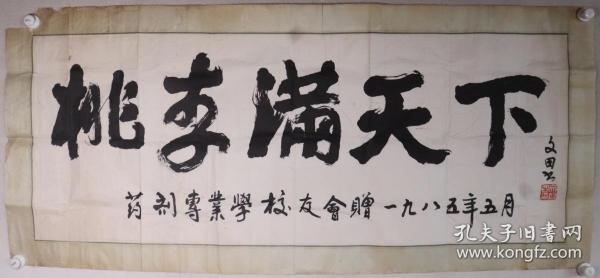 桃李满天下
文田书
药剂專業學校友會贈一九八五年五月
孔夫子旧书网
www.kongfz.com